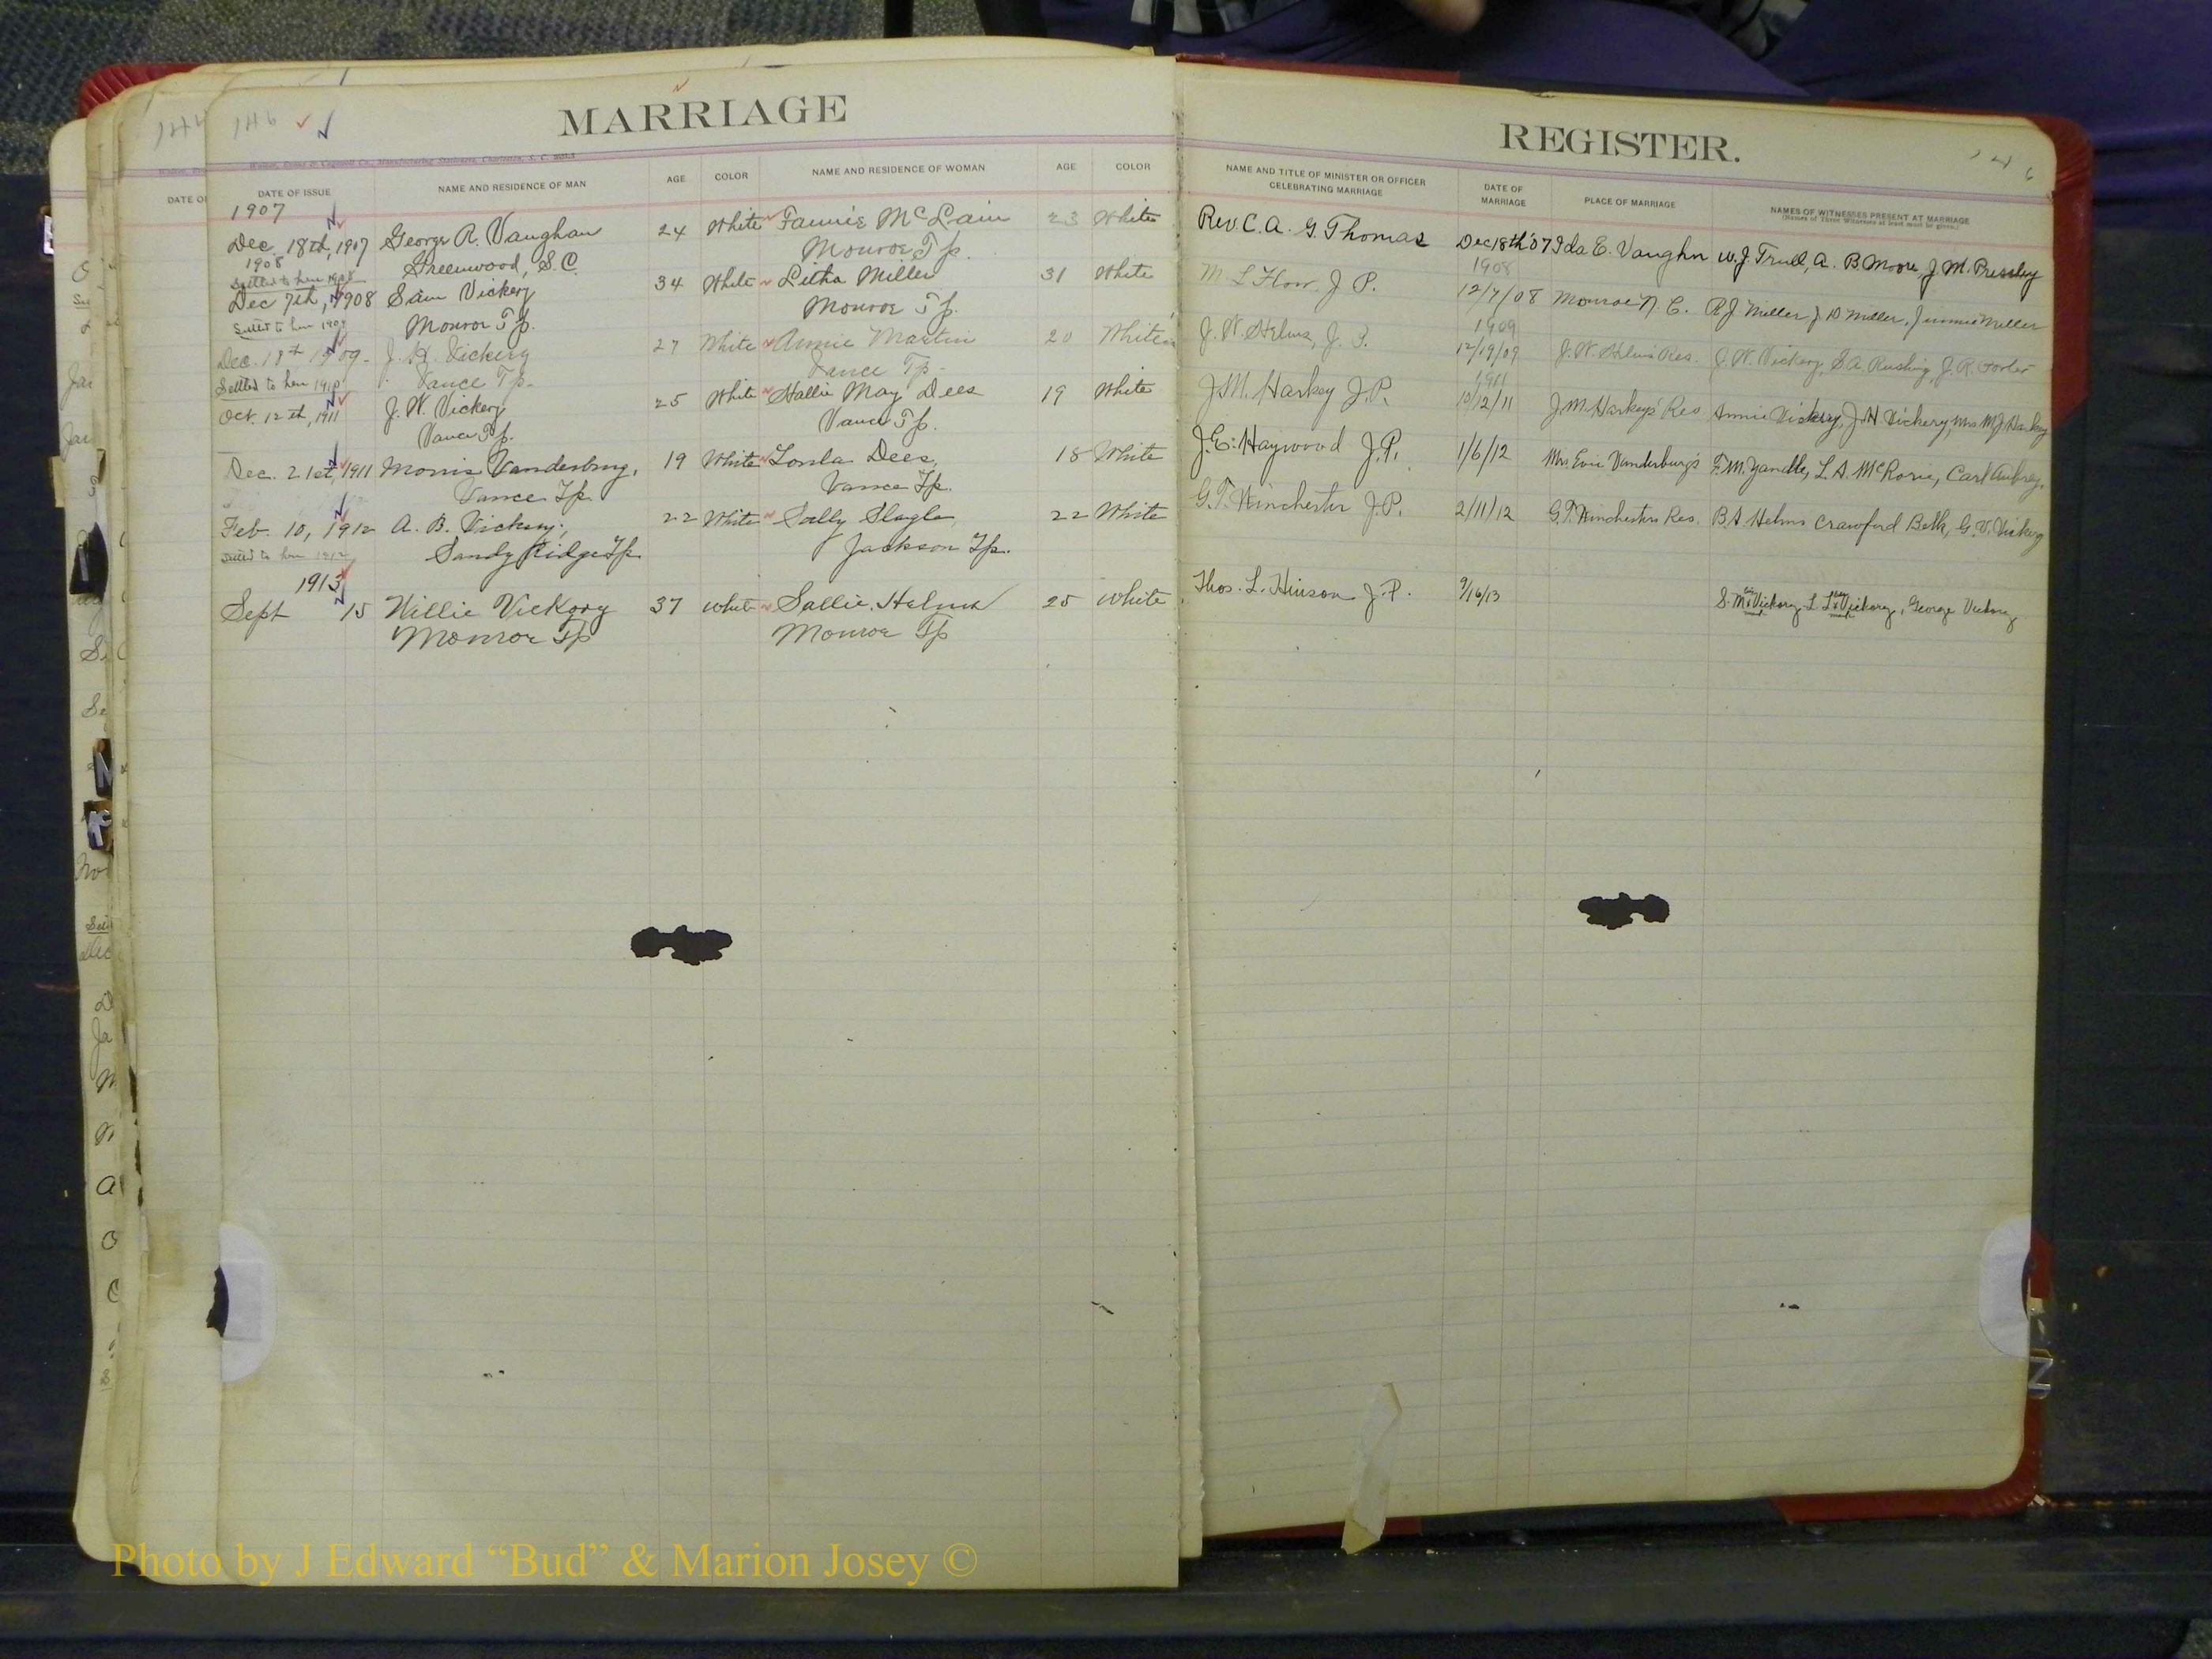 MARRIAGE
REGISTER.
146
DATE OF ISSUE
NAME AND RESIDENCE OF MAN
AGE
COLOR
NAME AND RESIDENCE OF WOMAN
AGE
COLOR
NAME AND TITLE OF MINISTER OR OFFICER CELEBRATING MARRIAGE
DATE OF MARRIAGE
PLACE OF MARRIAGE
NAMES OF WITNESSES PRESENT AT MARRIAGE
(Names of Three Witnesses at least must be given.)
1907
Dec. 18th, 1907 George R. Vaughan 24 White Fannie McLain 23 White Rev. C. A. G. Thomas Dec 18th '07 Ida E. Vaughn W. J. Trull, A. B. Moore, J. M. Pressley
Greenwood, S.C. Monroe Tp.
1908
Settled to here 1908
1908
Dec 7th, 1908 Sam Vickery 34 White Litha Miller 31 White M. L. Flow J. P. 12/7/08 Monroe N. C. R J. Miller, J D Miller, Jimmie Miller
Monroe Tp. Monroe Tp.
Settled to here 1909
1909
Dec. 18th 1909 J. H. Vickery 27 White Annie Martin 20 White J. W. Helms, J. P. 12/19/09 J. W. Helms Res. J. W. Vickery, S. A. Rushing, J. R.
Vance Tp. Vance Tp.
Settled to here 1910
1911
Oct. 12th, 1911 J. W. Vickery 25 White Hallie May Dees 19 White J. M. Harkey J. P. 10/12/11 J M Harkeys' Res Annie Vickery, J. H. Vickery, Mrs M J Harkey
Vance Tp. Vance Tp.
Dec. 21st, 1911 Morris Vanderburg, 19 White Lonla Dees, 18 White J. E. Haywood J. P. 1/6/12 Mrs. Evie Vanderburg's F. M. Yandle, L. A. McRorie, Carl Aubrey.
Vance Tp. Vance Tp.
Feb. 10, 1912 A. B. Vickery, 22 White Sally Slagle 22 White G. T. Winchester J. P. 2/11/12 G. T. Winchesters Res. B. A. Helms Crawford Belk, G. V. Vickery
Sandy Ridge Tp. Jackson Tp.
Settled to here 1912
1913
Sept 15 Willie Vickory 37 White Sallie Helms 25 White Thos. L. Hinson J. P. 9/16/13 S. M. Vickory, L. L. Vickory, George Vickory
Monroe Tp Monroe Tp
Photo by J Edward “Bud” & Marion Josey ©